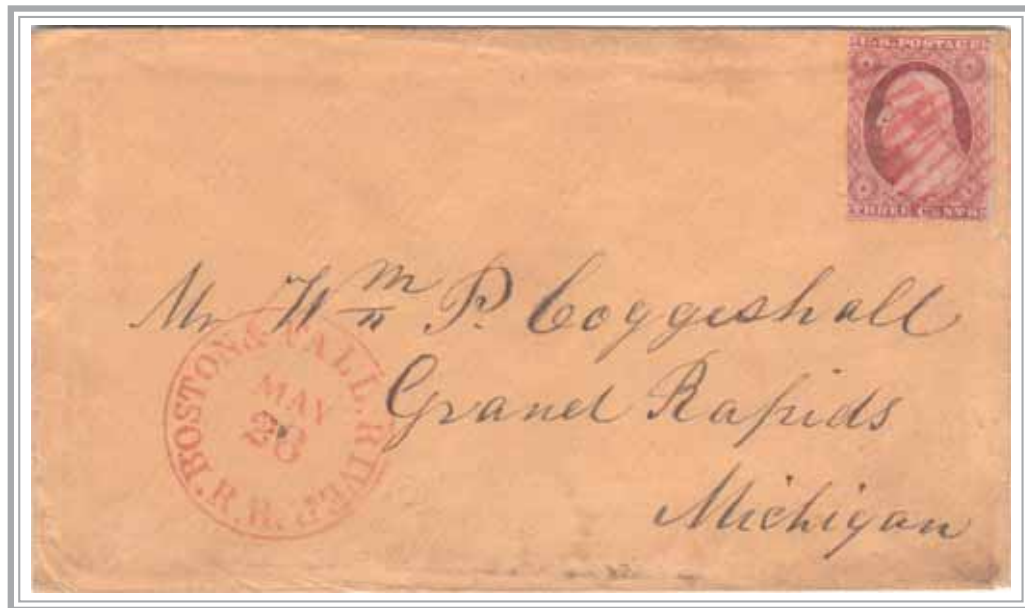 U.S. POSTAGE
THREE CENTS
Mr Wm P. Coggeshall
Grand Rapids
Michigan
BOSTON & FALL. RIVER R.R.
MAY